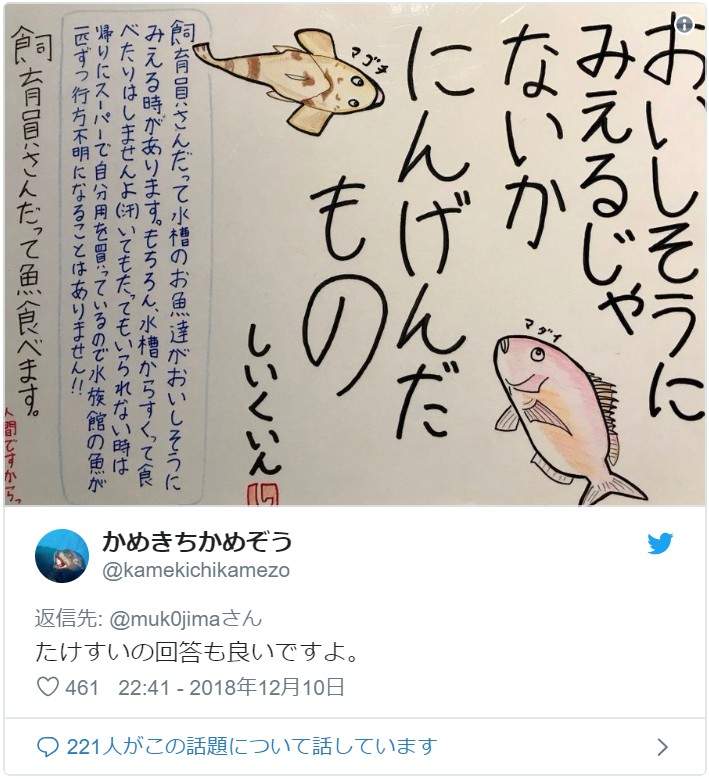 おいしそうに
みえるじゃ
ないか
にんげんだ
もの
しいくいん
マゴチ
マダイ
飼育員さんだって水槽のお魚達がおいしそうに
みえる時があります。もちろん、水槽からすくって食
べたりはしませんよ(汗)いてもたってもいられない時は
帰りにスーパーで自分用を買っているので水族館の魚が
一匹ずつ行方不明になることはありません!!
飼育員さんだって魚食べます。
人間ですからっ
かめきちかめぞう
@kamekichikamezo
返信先: @muk0jimaさん
たけすいの回答も良いですよ。
461 22:41 - 2018年12月10日
221人がこの話題について話しています